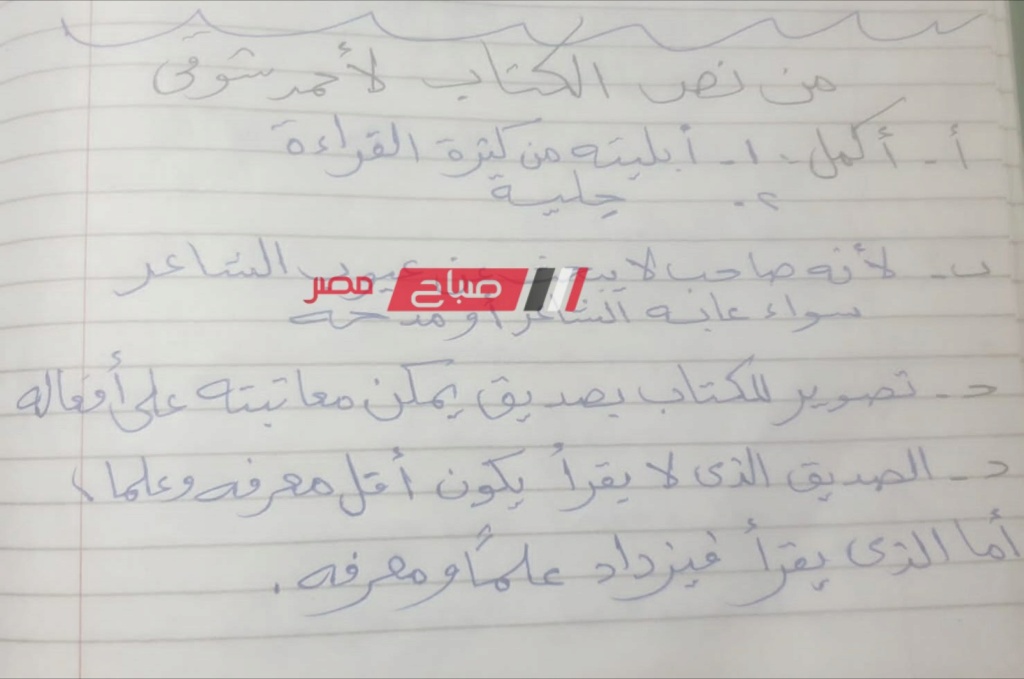 من نص الكتاب لأحمد شوقى
أ - أكمل - ١ - أبليته من كثرة القراءة
٢ - حلية
ب - لأنه صاحب لا عيوب الشاعر
صباح مصر
سواء عابه الشاعر أو مدحه
د - تصوير للكتاب بصديق يمكن معاتبته على أفعاله
د - الصديق الذى لا يقرأ يكون أقل معرفه وعلما،
أما الذى يقرأ فيزداد علمًا ومعرفه .